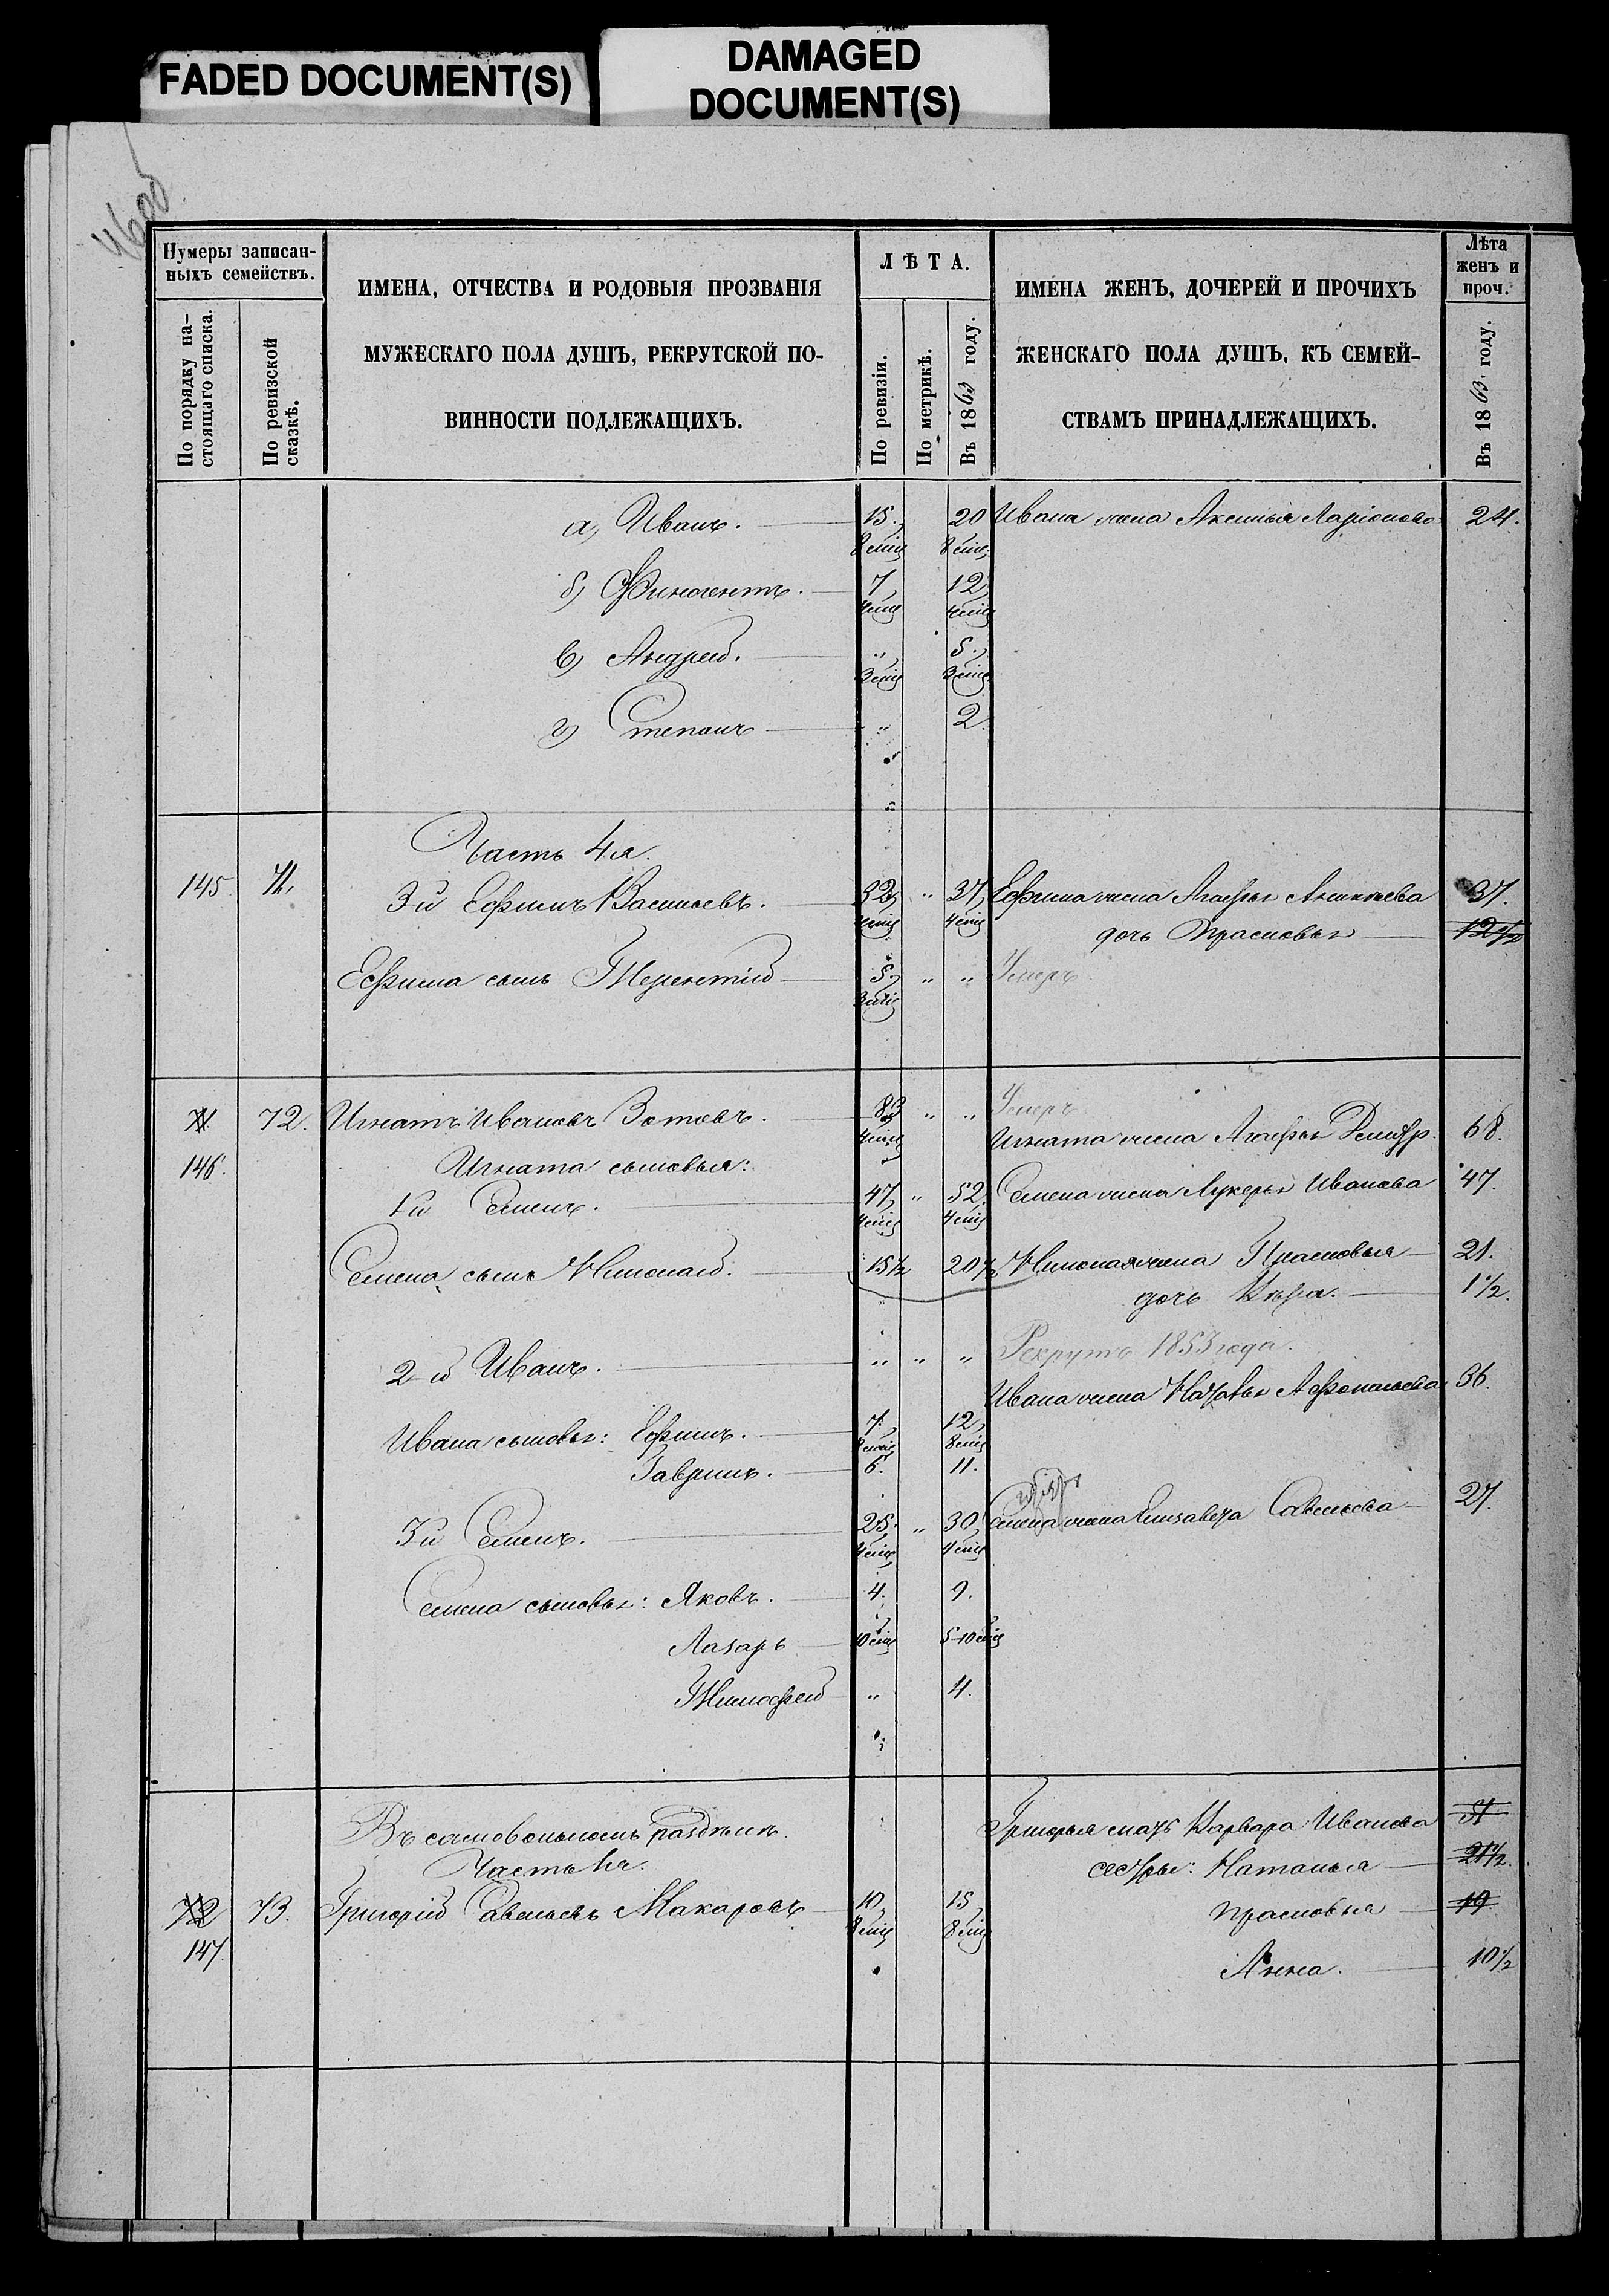 FADED DOCUMENT(S)
DAMAGED
DOCUMENT(S)
Нумеры записан-
ныхъ семействъ.
По порядку на-
стоящаго списка.
По ревизской
сказкѣ.
ИМЕНА, ОТЧЕСТВА И РОДОВЫЯ ПРОЗВАНІЯ
МУЖЕСКАГО ПОЛА ДУШЪ, РЕКРУТСКОЙ ПО-
ВИННОСТИ ПОДЛЕЖАЩИХЪ.
ЛѢТА.
По ревизіи.
По метрикѣ.
Въ 1863 году.
ИМЕНА ЖЕНЪ, ДОЧЕРЕЙ И ПРОЧИХЪ
ЖЕНСКАГО ПОЛА ДУШЪ, КЪ СЕМЕЙ-
СТВАМЪ ПРИНАДЛЕЖАЩИХЪ.
Лѣта
женъ и
проч.
Въ 1863 году.
а) Иванъ. 15. 20 Ивана жена Аксинья Ларіонова 24.
8 мѣц 8 мѣц
б) Финогентъ. 7, 12,
4 мѣц 4 мѣц
в) Андрей. „ 5.,
3 мѣц 3 мѣц
г) Степанъ „ 2.
Часть 4я.
145. 71. 3й Ефимъ Васильевъ. 32, „ 37, Ефима жена Агафья 37.
4 мѣц 4 мѣц дочь Прасковья 12 1/2
Ефима сынъ Терентій 5, „ „ Умеръ
3 мѣц
71. 72. Игнатъ Ивановъ Зотовъ. 83 „ „ Умеръ
4 мѣц Игната жена Агафья Дмитр. 68.
146. Игната сыновья:
1й Семенъ. 47, „ 52, Семена жена Лукерья Иванова 47.
4 мѣц 4 мѣц
Семена сынъ Николай. 15 1/2 20 1/2 Николая жена Прасковья 21.
дочь Вѣра. 1 1/2.
2-й Иванъ. „ „ „ Рекрутъ 1853 года.
Ивана жена Афонасьева 36.
Ивана сыновья: Ефимъ. 7, 12,
8 мѣц 8 мѣц
Гаврила. 6. 11.
3й Семенъ. 25, „ 30, Семена жена Елизавета Савельева 27.
4 мѣц 4 мѣц
Семена сыновья: Яковъ. 4. 9.
Лазарь 10 мѣц 5-10 мѣц
Тимофей „ 4.
Въ самовольномъ раздѣлѣ. Григорья мать Варвара Иванова 51
Часть 1я. сестры: Наталья 21 1/2.
72 73. Григорій Савельевъ Макаровъ 10, 15, Прасковья 19
8 мѣц 8 мѣц
147. Анна. 10 1/2